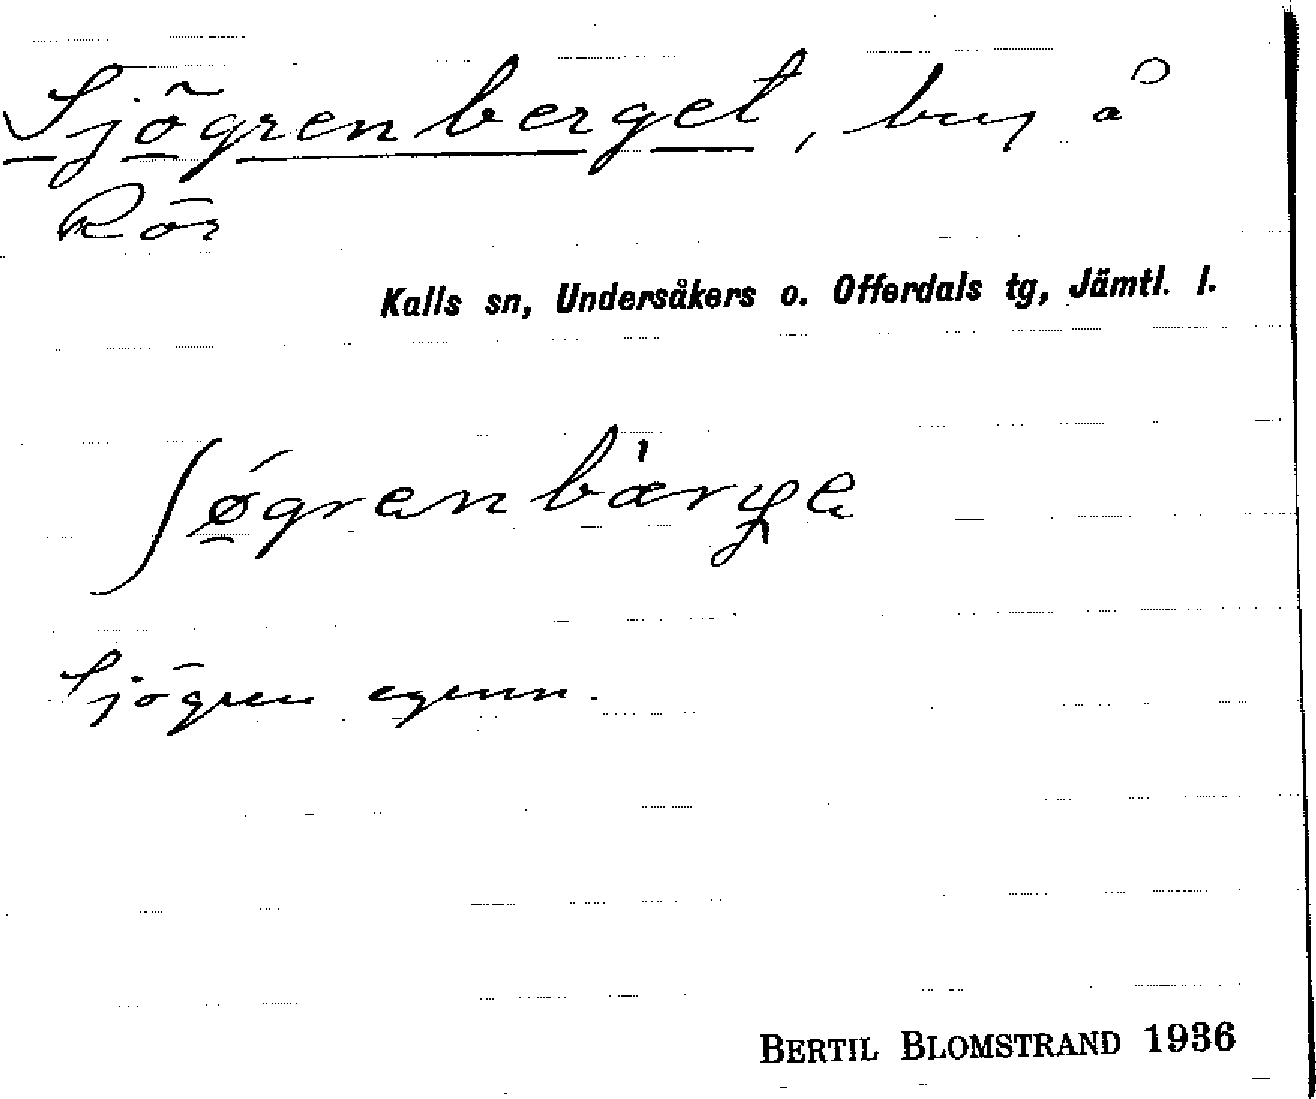 Sjögrenberget, berg å
Rör
Kalls sn, Undersåkers o. Offerdals tg, Jämtl. l.
Sjögren egenn.
BERTIL BLOMSTRAND 1936